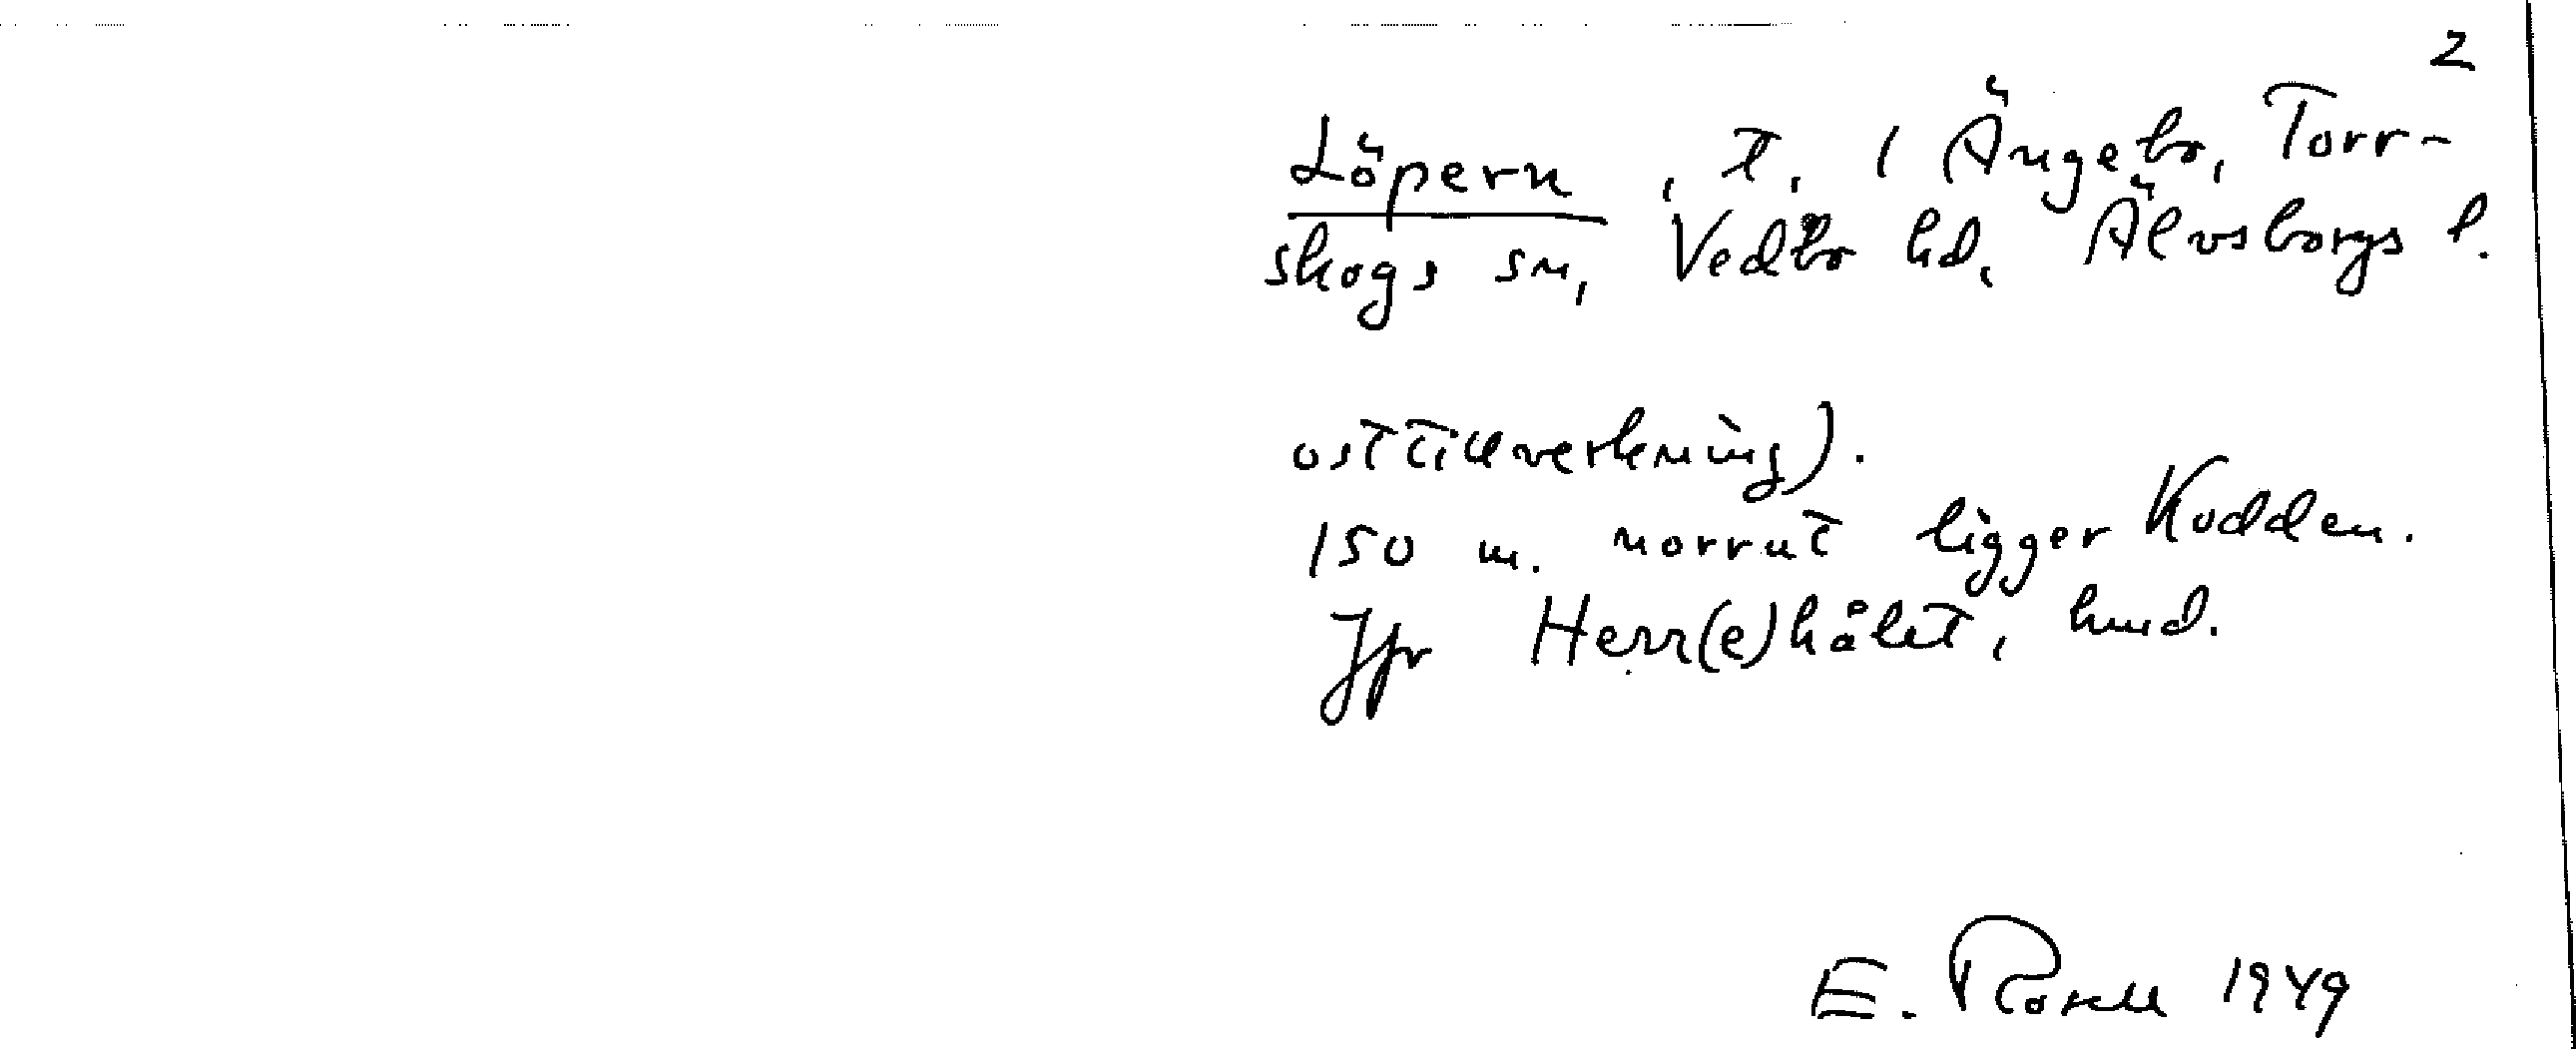 2
Löpern, t. 1 Ängebo, Torr-
skogs sn, Vedbo hd, Älvsborgs l.
osttillverkning).
150 m. norrut ligger Kodden.
Jfr Herr(e)hålet,
E. 1949